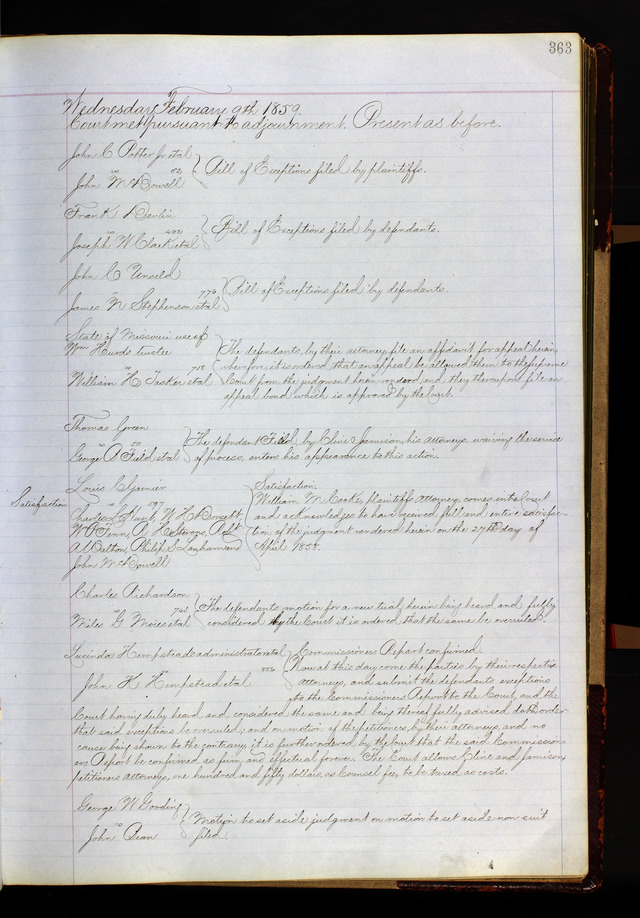 363
Wednesday February 9th 1859.
Court met pursuant to adjournment. Present as before.
John C Potter jr et al
vs 52 Bill of Exceptions filed by plaintiffs.
John McDowell
Frank
vs 402 Bill of Exceptions filed by defendants.
Joseph W Clark et al
John C Unseld
vs 776 Bill of Exceptions filed by defendants.
James N Stephenson et al
State of Missouri use of
Wm Hurds trustee The defendants, by their attorney, file an affidavit for appeal herein,
vs 718 wherefore it is ordered that an appeal be allowed them to the Supreme
William H Tasker et al Court from the judgment herein rendered, and they thereupon file an
appeal bond which is approved by the Court.
Thomas Green
vs 20 The defendant Field, by Cline & Jamison, his attorneys, waiving the service
George A Field et al of process, enters his appearance to this action.
Louis Satisfaction.
Satisfaction vs 297 William M Cooke, plaintiffs attorney, comes into Court
Charles L Hunt, W H and acknowledges to have received full and entire satisfac-
W Fenn, R H Stevens, Robt tion of the judgment rendered herein on the 27th day of
A Barton, Philip S Lanham and April 1858.
John McDowell
Charles Richardson
vs 743 The defendants motion for a new trial herein being heard and fully
Miles G Moies et al considered by the Court it is ordered that the same be overruled.
Lucinda Hempstead administrator et al Commissioners Report confirmed.
vs Now at this day come the parties by their respective
John K Hempstead et al attorneys, and submit the defendants exceptions
to the Commissioners Report to the Court, and the
Court having duly heard and considered the same and being thereof fully advised doth order
that said exceptions be overruled; and on motion of the petitioners by their attorneys, and no
cause being shown to the contrary, it is further ordered by the Court that the said Commission-
ers Report be confirmed as firm and effectual forever. The Court allows Cline and Jamison,
petitioners attorneys, one hundred and fifty dollars, as Counsel fee, to be taxed as costs.
George W Gooding
vs Motion to set aside judgment on motion to set aside non suit
John Dean filed.